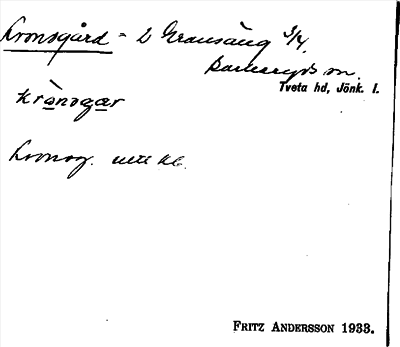 Kronsgård - L Gransäng 3/4.
Barkeryds sn.
Tveta hd, Jönk. l.
krònsgar
Kronsg.
FRITZ ANDERSSON 1933.